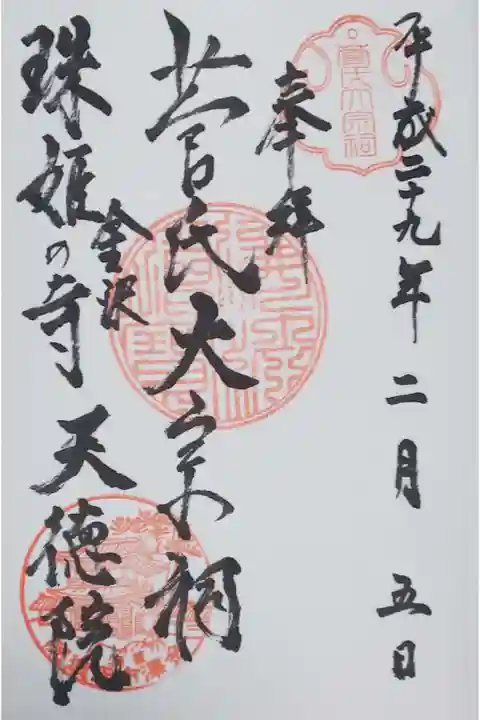 平成二十九年二月五日
奉拝
菅氏大宗祠
金沢
珠姫の寺天徳院